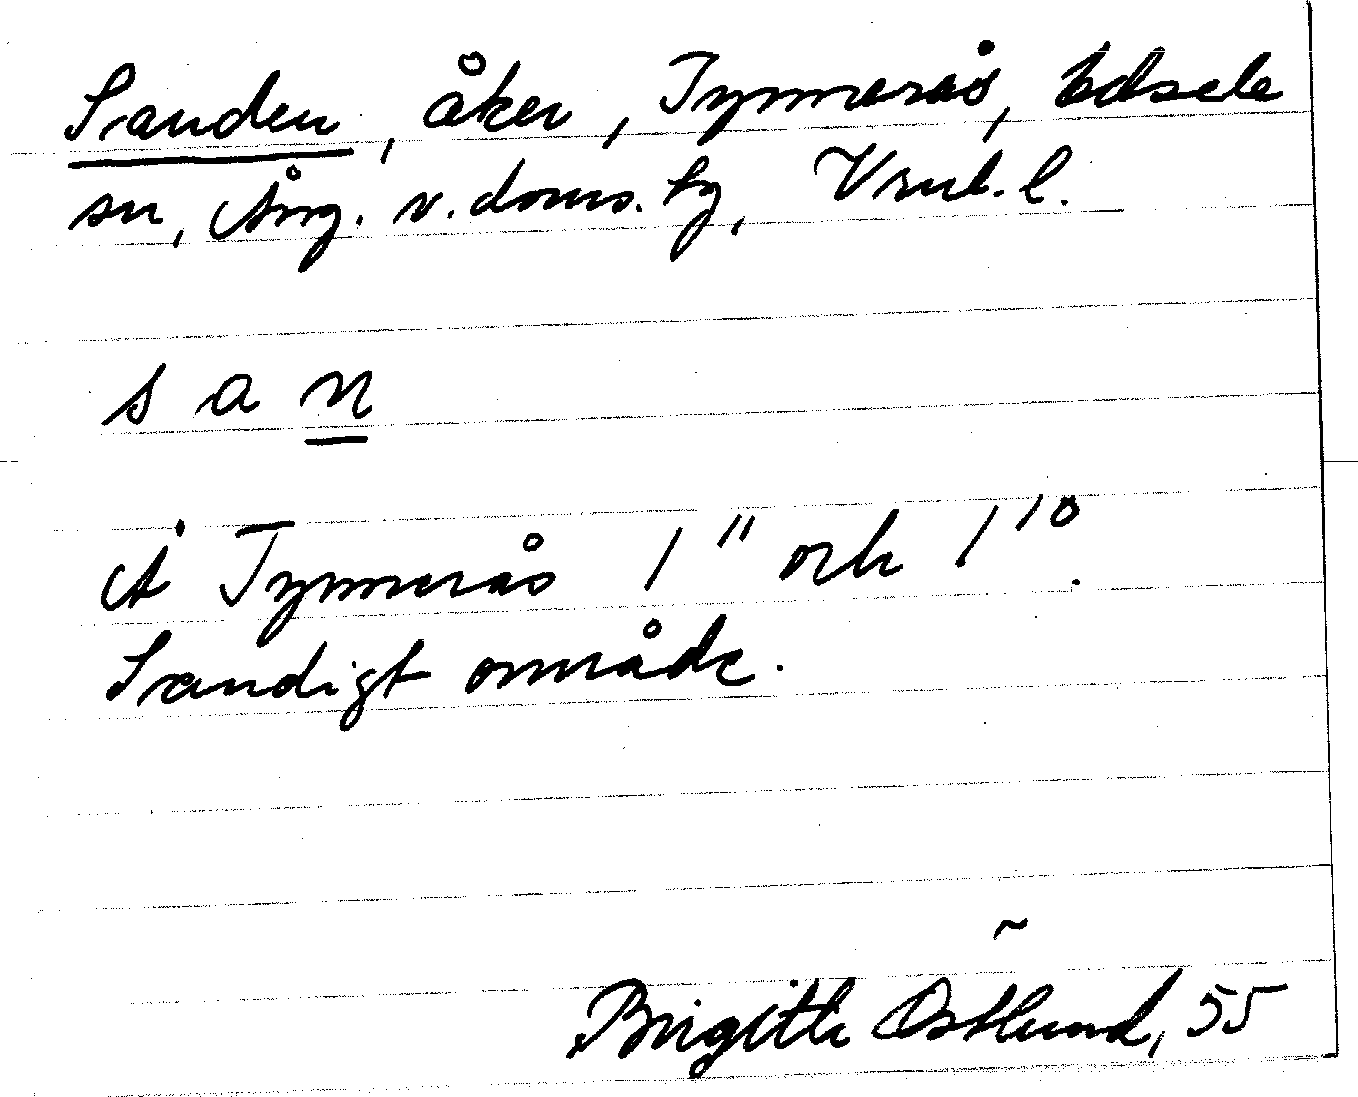 Sanden, åker, Tymmerås, Edsele
sn, Ång. v. doms. tg,
s a n
Å Tymmerås 1" och 1¹⁰.
Sandigt område.
Birgitta Östlund, 55